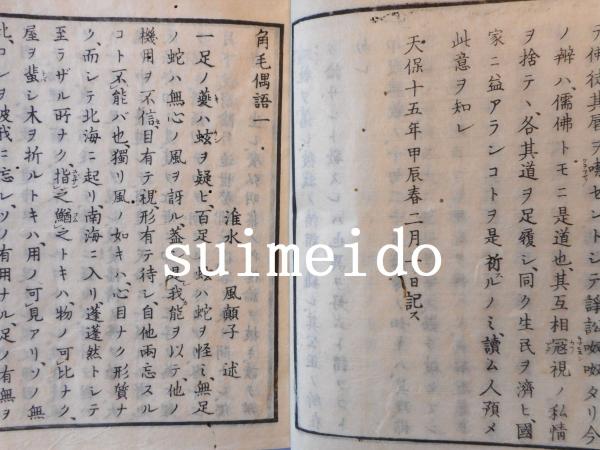 テ佛徒其唇ヲ
ノ辨ハ、儒佛トモニ是道也、其互相冦視ノ私情
ヲ捨テヽ、各其道ヲ足履シ、同ク生民ヲ濟ヒ、國
家ニ益アランコトヲ是祈ルノミ、讀ム人預メ
此意ヲ知レ
天保十五年甲辰春二月 日記ス
角毛偶語一
淮水 風顛子 述
一足ノ夔ハ蚿ヲ疑ヒ、百足ノ蚿ハ蛇ヲ怪ミ、無足
ノ蛇ハ無心ノ風ヲ訝ル、蓋 我能ヲ以テ、他ノ
機用ヲ不信、目有テ視、形有テ待シ、自他兩忘スル
コト不能バ也、獨リ風ノ如キハ、心目ナク形質ナ
ク、而シテ北海ニ起リ南海ニ入リ、蓬蓬然トシテ
至ラザル所ナク、指之鰌之トキハ、物ノ可比ナク、
屋ヲ蜚シ木ヲ折ルトキハ、用ノ可見アリ、ソノ無
此、コレヲ彼我ニ忘レ、ソノ有用ナル、足ノ有無ヲ
suimeido